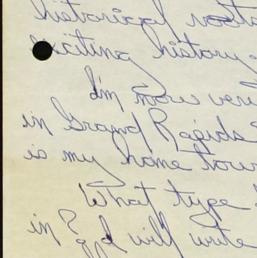 historical roots
exciting history
I'm now very
in Grand Rapids
is my home town
What type
in? I will write